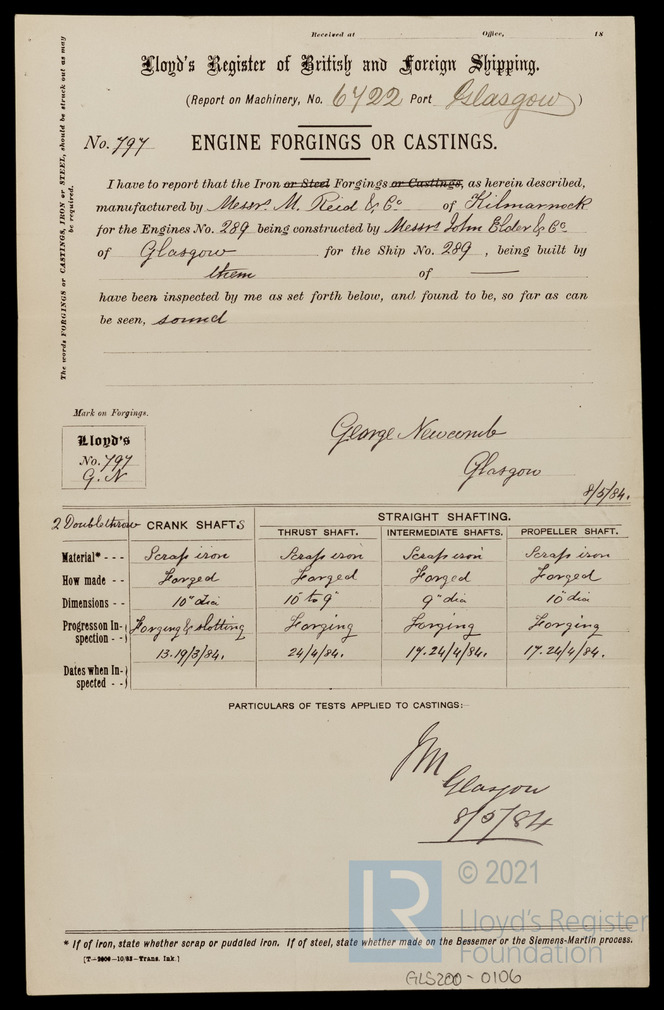 Received at Office, 18
Lloyd's Register of British and Foreign Shipping.
(Report on Machinery, No. 6722 Port Glasgow)
No. 797 ENGINE FORGINGS OR CASTINGS.
The words FORGINGS or CASTINGS, IRON or STEEL, should be struck out as may
be required.
I have to report that the Iron or Steel Forgings or Castings, as herein described,
manufactured by Messrs M. Reid & Co of Kilmarnock
for the Engines No. 289 being constructed by Messrs John Elder & Co
of Glasgow for the Ship No. 289, being built by
them of —
have been inspected by me as set forth below, and found to be, so far as can
be seen, sound
Mark on Forgings.
Lloyd's
No. 797
G. N
George Newcomb
Glasgow
8/5/84.
2 Doublethrow CRANK SHAFTS STRAIGHT SHAFTING.
THRUST SHAFT. INTERMEDIATE SHAFTS. PROPELLER SHAFT.
Material* - - - Scrap iron Scrap iron Scrap iron Scrap iron
How made - - Forged Forged Forged Forged
Dimensions - - 10" dia 10" to 9" 9" dia 10" dia
Progress on In- Forging & slotting Forging Forging Forging
spection - -
13.19/3/84. 24/4/84. 17.24/4/84. 17.24/4/84.
Dates when In-
spected - -
PARTICULARS OF TESTS APPLIED TO CASTINGS:—
JM
Glasgow
8/5/84
© 2021
LR
Lloyd's Register
Foundation
* If of iron, state whether scrap or puddled iron. If of steel, state whether made on the Bessemer or the Siemens-Martin process.
[T—2606—10/83—Trans. Ink.]
GLS200-0106